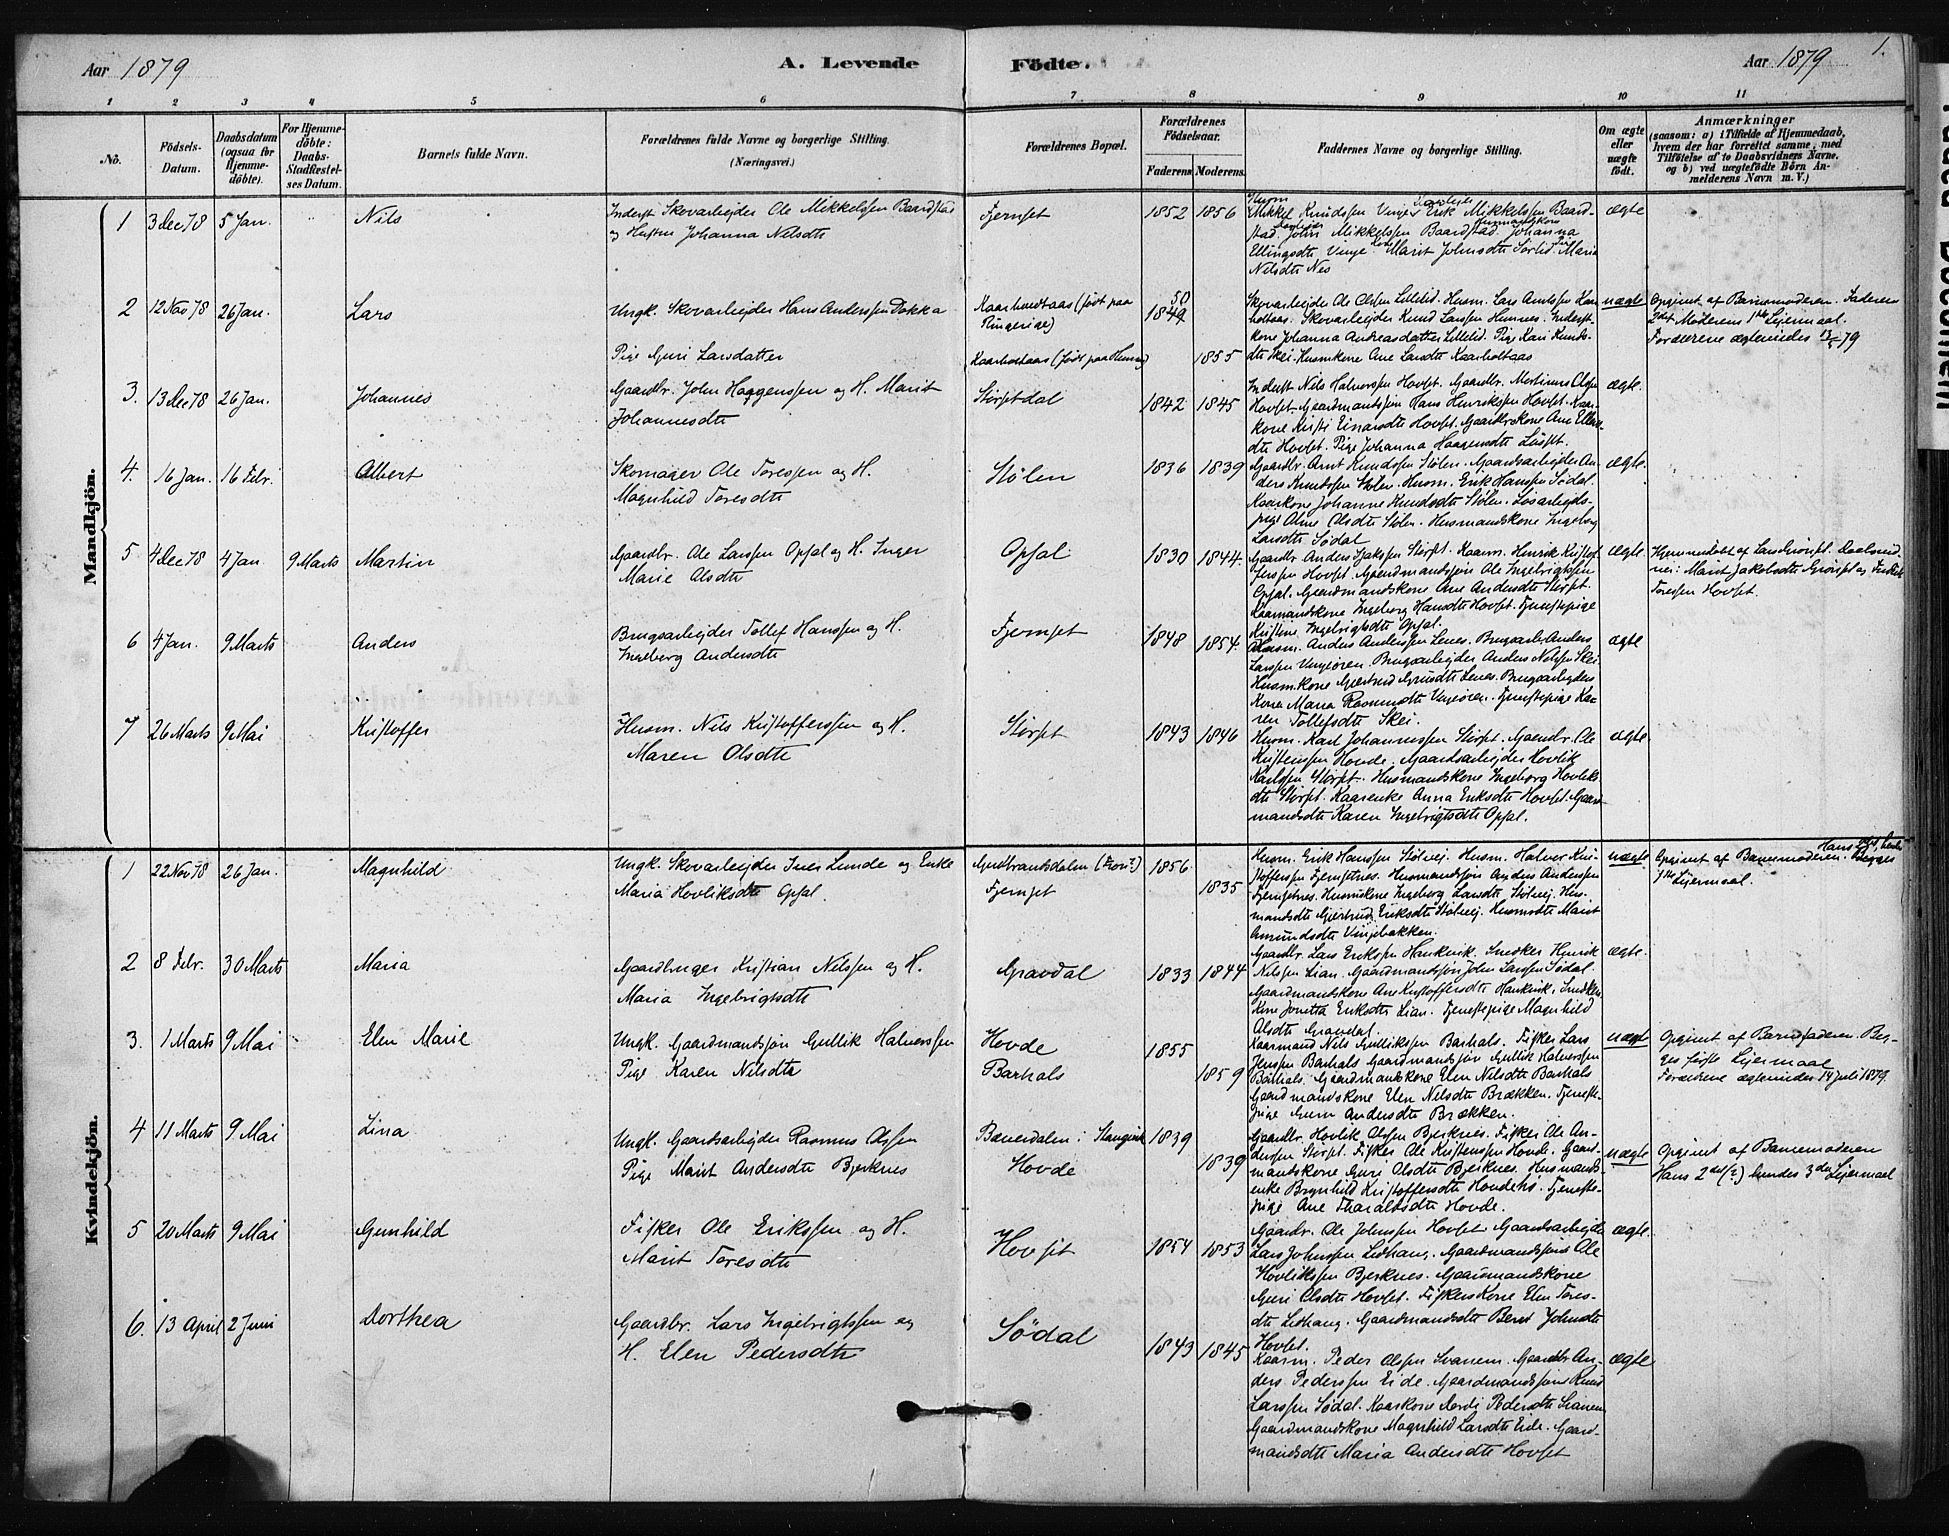 Aar 1879
A. Levende
Födte.
Aar 1879
1.
1 2 3 4 5 6 7 8 9 10 11
No.
Födsels-
Datum.
Daabsdatum
(ogsaa for
Hjemme-
döbte).
For Hjemme-
döbte:
Daabs-
Stadfæstel-
ses Datum.
Barnets fulde Navn.
Forældrenes fulde Navne og borgerlige Stilling.
(Næringsvei.)
Forældrenes Bopæl.
Forældrenes
Födselsaar.
Faderens Moderens.
Faddernes Navne og borgerlige Stilling.
Om ægte
eller
uægte
födt.
Anmærkninger
(saasom: a) i Tilfælde af Hjemmedaab,
hvem der har forrettet samme, med
Tilföielse af to Daabsvidners Navne.
og b) ved uægtefödte Börn An-
melderens Navn m. V.)
Mandkjön.
1 3 Dec 78 5 Jan. Nils
Inderst Skovarbejder Ole Mikkelssen Baardstad
og Hustru Johanna Nilsdtr
Fjernset 1852 1856
Husm.
Mikkel Knudssen Vinje Erik Mikkelssen Baard-
stad John Mikkelssen Baardstad Johanna
Ellingsdtr Vinje Marit Johnsdtr Sørlid Maria
Nilsdtr Nes
ægte
2 12 Nov 78 26 Jan. Lars
Ungk. Skovarbejder Hans Anderssen Dokka
Pige Guri Larsdatter
(født paa
Ringerige)
50
1849
1855
Skovarbejder Ole Olssen Lillelid. Husm. Lars Arntssen Kaar-
holtaas. Skovarbejder Knud Larssen Hennes. Inderst-
kone Johanna Andreasdatter Lillelid. Pige Kari Knuds-
dtr Skei. Husmkone Ane Larsdtr Kaarholtaas
uægte
Opgivet af Barnemoderen. Faderens
2det Moderens 1ste Lejermaal.
Forældrene ægteviedes 79
3. 13 Dec 78 26 Jan. Johannes
Gaardbr. John Haggenssen og H. Marit
Johannesdtr
Størsetdal 1842 1845
Inderst Nils Halvorssen Hovset. Gaardbr. Martinus Olssen
Hovset. Gaardmandssøn Hans Henrikssen Hovset. Kaar-
kone Kristi Einarsdtr Hovset. Gaardbrskone Ane Ellens-
dtr Hovset. Pige Johanna Haagensdtr
ægte.
4. 16 Jan. 16 Febr. Albert
Skomager Ole Toressen og H.
Magnhild Toresdtr
Stølen 1836 1839
Gaardbr. Arnt Knudssen Stølen. Gaardsarbejder An-
ders Knudssen Stølen. Husm. Erik Hanssen Sødal.
Kaarkone Johanne Knudsdtr Stølen. Løsarbejds-
pige Ane Olsdtr Stølen. Husmandskone Ingeborg
Larsdtr Sødal
ægte.
5 4 Dec 78 4 Jan 9 Marts Martin
Gaardbr. Ole Larssen Opsal og H. Inger
Marie Olsdtr
Opsal 1830 1844.
Gaardbr Anders Størset. Kaarm. Henrik Kristof-
ferssen Hovset. Gaardmandssøn Ole Ingebrigtssen
Opsal. Gaardmandskone Ane Andersdtr Størset.
Kaarmandskone Ingeborg Hansdtr Hovset. Tjenestepige
Kristine Ingebrigtsdtr Opsal.
ægte
Hjemmedøbt af Lars Grønset. Daabsvid-
ner: Marit Jakobsdtr Grønset og
Toressen Hovset.
6 4 Jan. 9 Marts Anders
Brugsarbejder Tollef Hanssen og H.
Ingeborg Andersdtr
Fjernset 1848 1854.
Husm. Anders Anderssen Lenes. Brugsarb. Anders
Larssen Vinjeøren. Brugsarbejder Anders Nilssen Skei
Husmkone Gjertrud Lenes. Brugsarbejders
Kone Maria Rasmusdtr Vinjeøren. Tjenestepige Ka-
ren Tollefsdtr Skei.
ægte
7 26 Marts 9 Mai Kristoffer
Husm. Nils Kristofferssen og H.
Maren Olsdtr
Størset 1843 1846
Husm. Karl Johannessen Størset. Gaardbr. Ole
Kristenssen Hovde. Gaardsarbejder Hovlik
Karlssen Størset. Husmandskone Ingeborg Hovliks-
dtr Størset. Kaarenke Anna Eriksdtr Hovset. Gaard-
mandsdtr Karen Ingebrigtsdtr Opsal.
ægte
Kvindekjön.
1 22 Nov 78 26 Jan. Magnhild
Ungk. Skovarbejder Iver Lunde og Enke
Maria Hovliksdtr Opsal.
Gudbrandsdalen
Fjernset
1856
1835
Husm. Erik Hanssen Stølvej. Husm. Halvor Kri-
stofferssen Fjernsetnes. Husmandssøn Anders Anderssen
Fjernsetnes. Husmkone Ingeborg Larsdtr Stølvej. Hus-
mandsdtr Gjertrud Eriksdtr Stølvej. Husmdtr Marit
Amundsdtr Vinjebakken.
uægte
Opgivet af Barnemoderen. Hans 2det, hendes
1ste Lejermaal.
2 8 Febr. 30 Marts Maria
Gaardbruger Kristian Nilssen og H.
Maria Ingebrigtsdtr
Gravdal 1833 1844
Gaardbr. Lars Erikssen Haukvik. Snedker Henrik
Nilssen Lian. Gaardmandssøn John Larssen Sødal.
Gaardmandskone Ane Kristoffersdtr Haukvik. Snedker-
kone Jonetta Eriksdtr Lian. Tjenestepige Magnhild
Olsdtr Gravdal.
ægte.
3. 1 Marts 9 Mai Elen Marie
Ungk. Gaardmandssøn Gullik Halvorssen
Pige Karen Nilsdtr
Hovde
Barhals
1855
1859
Kaarmand Nils Gullikssen Barhals. Fisker Lars
Jenssen Barhals Gaardmandssøn Gullik Halvorssen
Barhals. Gaardmandskone Elen Nilsdtr Barhals
Gaardmandskone Elen Nilsdtr Brækken. Tjeneste-
pige Guru Andersdtr Brækken.
uægte
Opgivet af Barnefaderen Beg-
ges første Lejermaal
Forældrene ægteviedes 14 Juli 1879.
4 11 Marts 9 Mai Lina
Ungk. Gaardsarbejder Rasmus Olssen
Pige Marit Andersdtr Bjerknes
Bæverdalen i Stangvik
Hovde
1839
1839
Gaardbr. Hovlik Olssen Bjerknes. Fisker Ole An-
derssen Størset. Fisker Ole Kristenssen Hovde. Gaard-
mandskone Guri Olsdtr Bjerknes. Husmands-
enke Brynhild Kristoffersdtr. Tjeneste-
pige Ane Tharaldsdtr Hovde.
uægte
Opgivet af Barnemoderen
Hans 2det (?) hendes 3die Lejermaal
5 20 Marts 9 Mai Gunhild
Fisker Ole Erikssen og H.
Marit Toresdtr
Hovset 1854 1853
Gaardbr. Ole Johnssen Hovset. Gaardsarbejder
Lars Johnssen Lidhaug. Gaardmandssøn Ole
Hovlikssen Bjerknes. Gaardmandskone
Guri Olsdtr Hovset. Fiskers Kone Elen Tores-
dtr Lidhaug. Gaardmandsdtr Beret Johnsdtr
Hovset.
ægte.
6. 13 April 2 Juni Dorthea
Gaardbr. Lars Ingebrigtssen og
H. Elen Pedersdtr
Sødal 1843 1845
Kaarm. Peder Olssen Svanem. Gaardbr An-
ders Pederssen Eide. Gaardmandssøn Knud
Larssen Sødal. Kaarkone Pedersdtr Svanem
Gaardmandskone Magnhild Larsdtr Eide. Gaard-
mandsdtr Maria Andersdtr Hovset
ægte